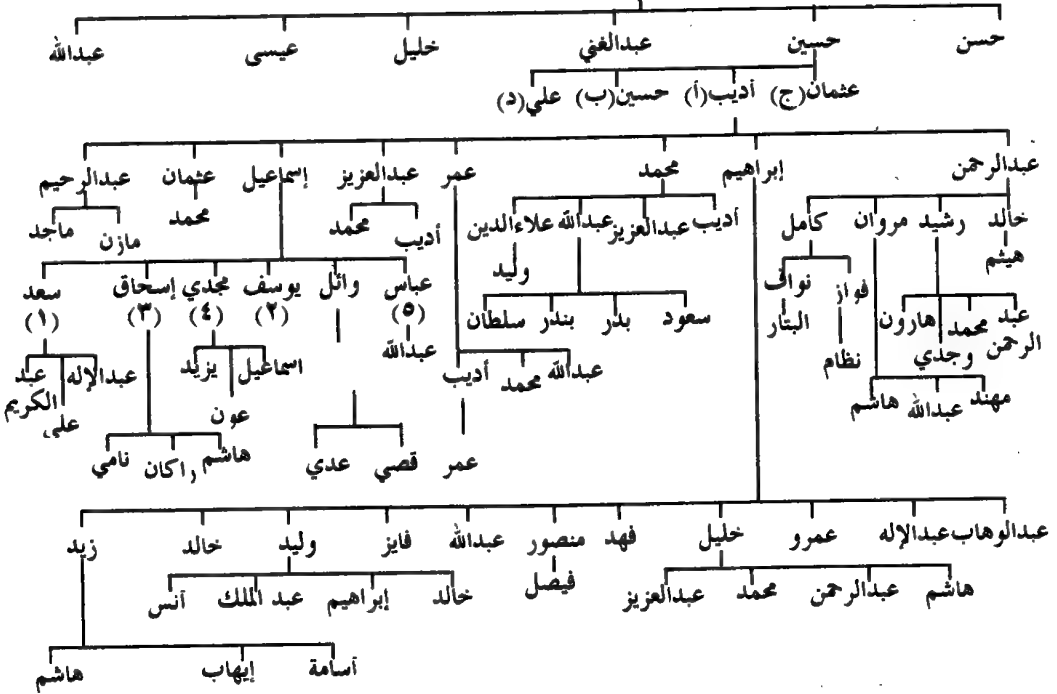 حسن حسين عبدالغني خليل عيسى عبدالله
عثمان (ج) أديب (أ) حسين (ب) علي (د)
عبدالرحمن إبراهيم محمد عمر عبدالعزيز إسماعيل عثمان عبدالرحيم
خالد رشيد مروان كامل أديب عبدالعزيز عبدالله علاءالدين أديب محمد محمد مازن ماجد
هيثم فواز نواف وليد
عباس وائل يوسف مجدي إسحاق سعد
(٥) (٢) (٤) (٣) (١)
عبد الرحمن محمد وجدي هارون نظام البتار سعود بدر بندر سلطان عبدالله
مهند عبدالله هاشم عبدالله محمد أديب اسماعيل عون يزيد عبدالإله علي عبد الكريم
عمر قصي عدي هاشم راكان نامي
عبدالوهاب عبدالإله عمرو خليل فهد منصور عبدالله فايز وليد خالد زيد
هاشم عبدالرحمن محمد عبدالعزيز فيصل خالد إبراهيم عبد الملك أنس
أسامة إيهاب هاشم